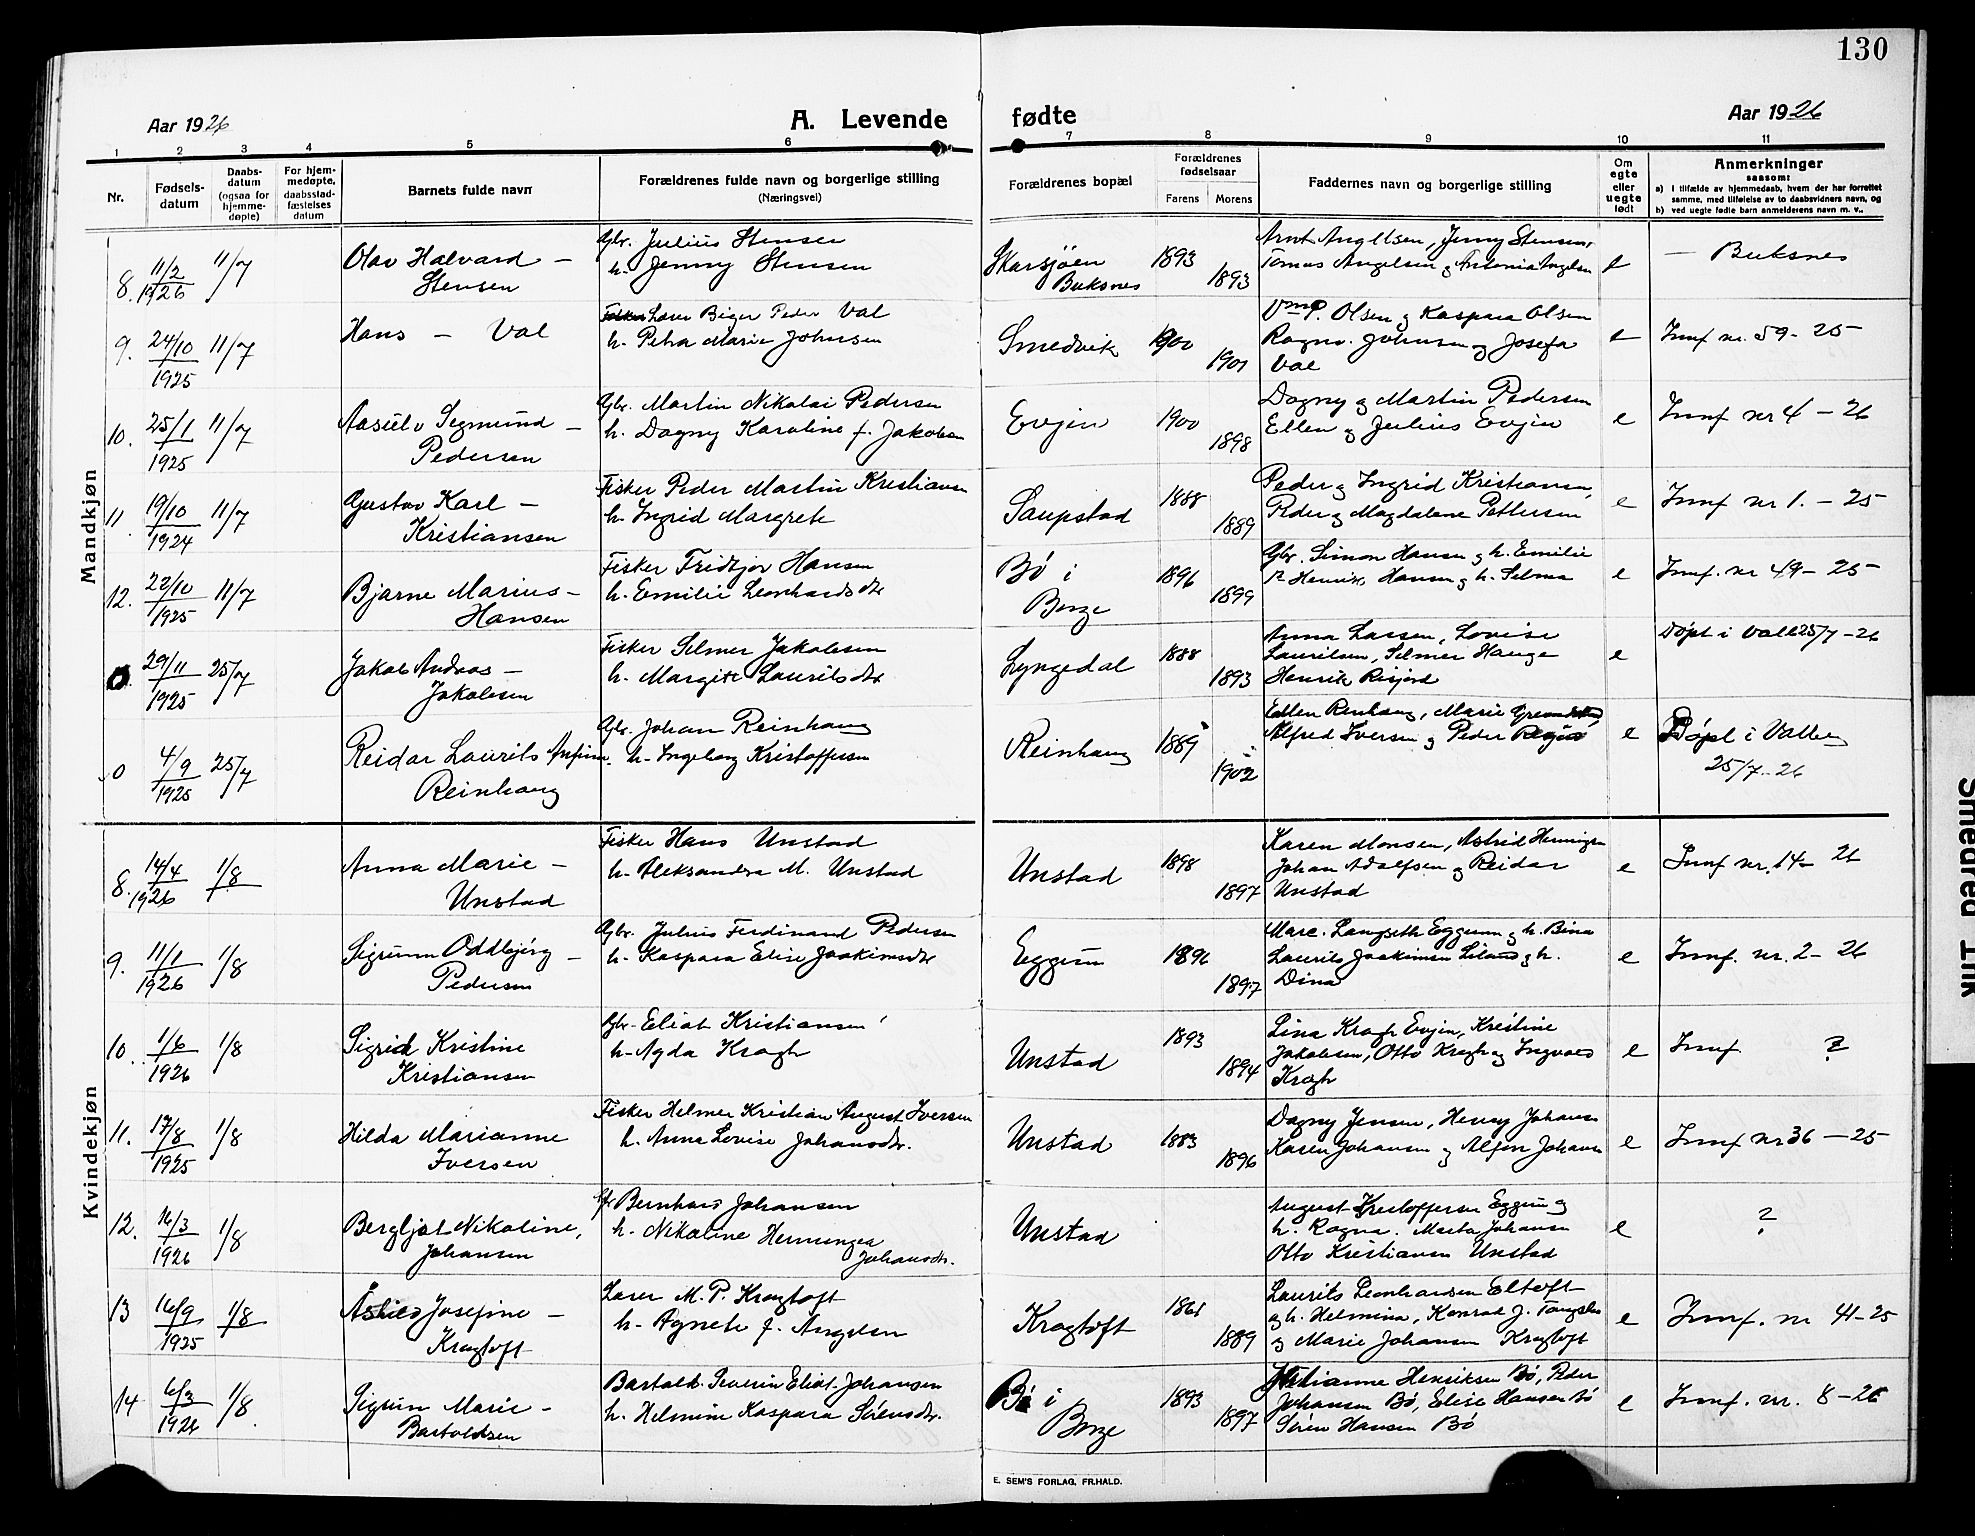 130
Aar 1926
A. Levende
fødte
Aar 1926
1 2 3 4 5 6 7 8 9 10 11
Nr.
Fødsels-
datum
Daabs-
datum
(ogsaa for
hjemme-
døpte)
For hjem-
medøpte,
daabsstad-
fæstelses
datum
Barnets fulde navn
Forældrenes fulde navn og borgerlige stilling
(Næringsvei)
Forældrenes bopæl
Forældrenes
fødselsaar
Farens Morens
Faddernes navn og borgerlige stilling
Om
egte
eller
uegte
født
Anmerkninger
saasom:
a) i tilfælde av hjemmedaab, hvem der har forrettet
samme, med tilføielse av to daabsvidners navn, og
b) ved uegte fødte barn anmelderens navn m. v..
Mandkjøn
8. 11/2 1926 11/7
Olav Halvard –
Stensen
Gbr. Julius Stensen
h. Jenny Stensen
Skarsjøen
Buksnes
1893
1893
Arnt Angelsen, Jenny Stensen,
Tomas Angelsen og Antonia Angelsen
e
– Buksnes
9. 24/10 1925 11/7
Hans – Val
Lærer Birger Peder Val
h. Petra Marie Johnsen
Smedvik
1900
1901
Olsen og Kaspara Olsen
Ragnv. Johnsen og Josefa
Val
e
Innf nr. 59 – 25
10. 25/1 1925 11/7
Aasulv Segmund –
Pedersen
Gbr. Martin Nikolai Pedersen
h. Dagny Karoline f. Jakobsen
Evjen
1900
1898
Dagny og Martin Pedersen
Ellen og Julius Evjen
e
Innf nr 4 – 26
11 19/10 1924 11/7
Gustav Karl –
Kristiansen
Fisker Peder Martin Kristiansen
h. Ingrid Margrete
Saupstad
1888
1889
Peder og Ingrid Kristiansen,
Peder og Magdalene Pettersen
e
Innf nr 1. – 25
12. 22/10 1925 11/7
Bjarne Marius –
Hansen
Fisker Fridtjov Hansen
h. Emilie Leonhardsdtr
Bø i
Borge
1896
1899
Gbr. Simon Hansen og h. Emilie
Henrik Hansen og h. Selma
e
Innf. nr 49 – 25
0. 29/11 1925 25/7
Jakob Andreas –
Jakobsen
Fisker Selmer Jakobsen
h. Margit Lauritsdtr
Lyngedal
1888
1893
Anna Larsen, Lovise
Lauritsen, Selmer Hauge
Henrik Risjord
e
Døpt i Valle 25/7 – 26
0 4/9 1925 25/7
Reidar Laurits Arfinn
Reinhaug
Gbr. Johan Reinhaug
h. Ingeborg Kristoffersen
Reinhaug
1889
1902
Ellen Renhaug, Marie
Alfred Iversen og Peder
e
Døpt i Valle
25/7 – 26
Kvindekjøn
8. 14/4 1926 1/8
Anna Marie –
Unstad
Fisker Hans Unstad
h. Aleksandra M. Unstad
Unstad
1898
1897
Karen Monsen, Astrid Henningsen
Johan Adolfsen og Reidar
Unstad
e
Innf nr. 14 – 26
9. 11/1 1926 1/8
Sigrunn Oddbjørg –
Pedersen
Gbr. Julius Ferdinand Pedersen
h. Kaspara Elise Joakimsdtr
Eggum
1896
1897
Marc. Langseth Eggum og h. Bina
Laurits Joakimsen Liland og h.
Dina
e
Innf. nr. 2 – 26
10. 1/6 1926 1/8
Sigrid Kristine
Kristiansen
Gbr. Eliot Kristiansen
h. Agda Kragh
Unstad
1893
1894
Lina Kragh Evjen, Kristine
Jakobsen, Otto Kragh og Ingvald
Kragh
e
Innf ?
11. 17/8 1925 1/8
Hilda Marianne
Iversen
Fisker Helmer Kristian August Iversen
h. Anna Lovise Johansdtr.
Unstad
1883
1896
Dagny Jensen, Henry Johansen
Karen Johansen og Alfon Johansen
e
Innf nr 36 – 25
12. 16/3 1926 1/8
Bergljot Nikoline,
Johansen
Bernhard Johansen
h. Nikoline Henningea
Johansdtr.
Unstad
August Kristoffersen Eggum og
h. Ragna. Marta Johansen
Otto Kristiansen Unstad
e
?
13 16/9 1925 1/8
Astrid Josefine –
Kragtoft
Lærer M. P. Kragtoft
h. Agnete f. Angelsen
Kragtoft
1861
1889
Laurits Leonhardsen Eltoft
og h. Helmina, Konrad J. Tangstad
og Marie Johansen Kragtoft
e
Innf. nr 41 – 25
14 6/3 1926 1/8
Sigrun Marie –
Bartoldsen
Bartold Severin Eliot Johansen
h. Helmine Kaspara Sørensdtr.
Bø i
Borge
1893
1897
Julianne Henriksen Bø, Peder
Johansen Bø, Elise Hansen Bø
Søren Hansen Bø
e
Innf. nr. 8 – 26
E. SEM'S FORLAG, FR.HALD.